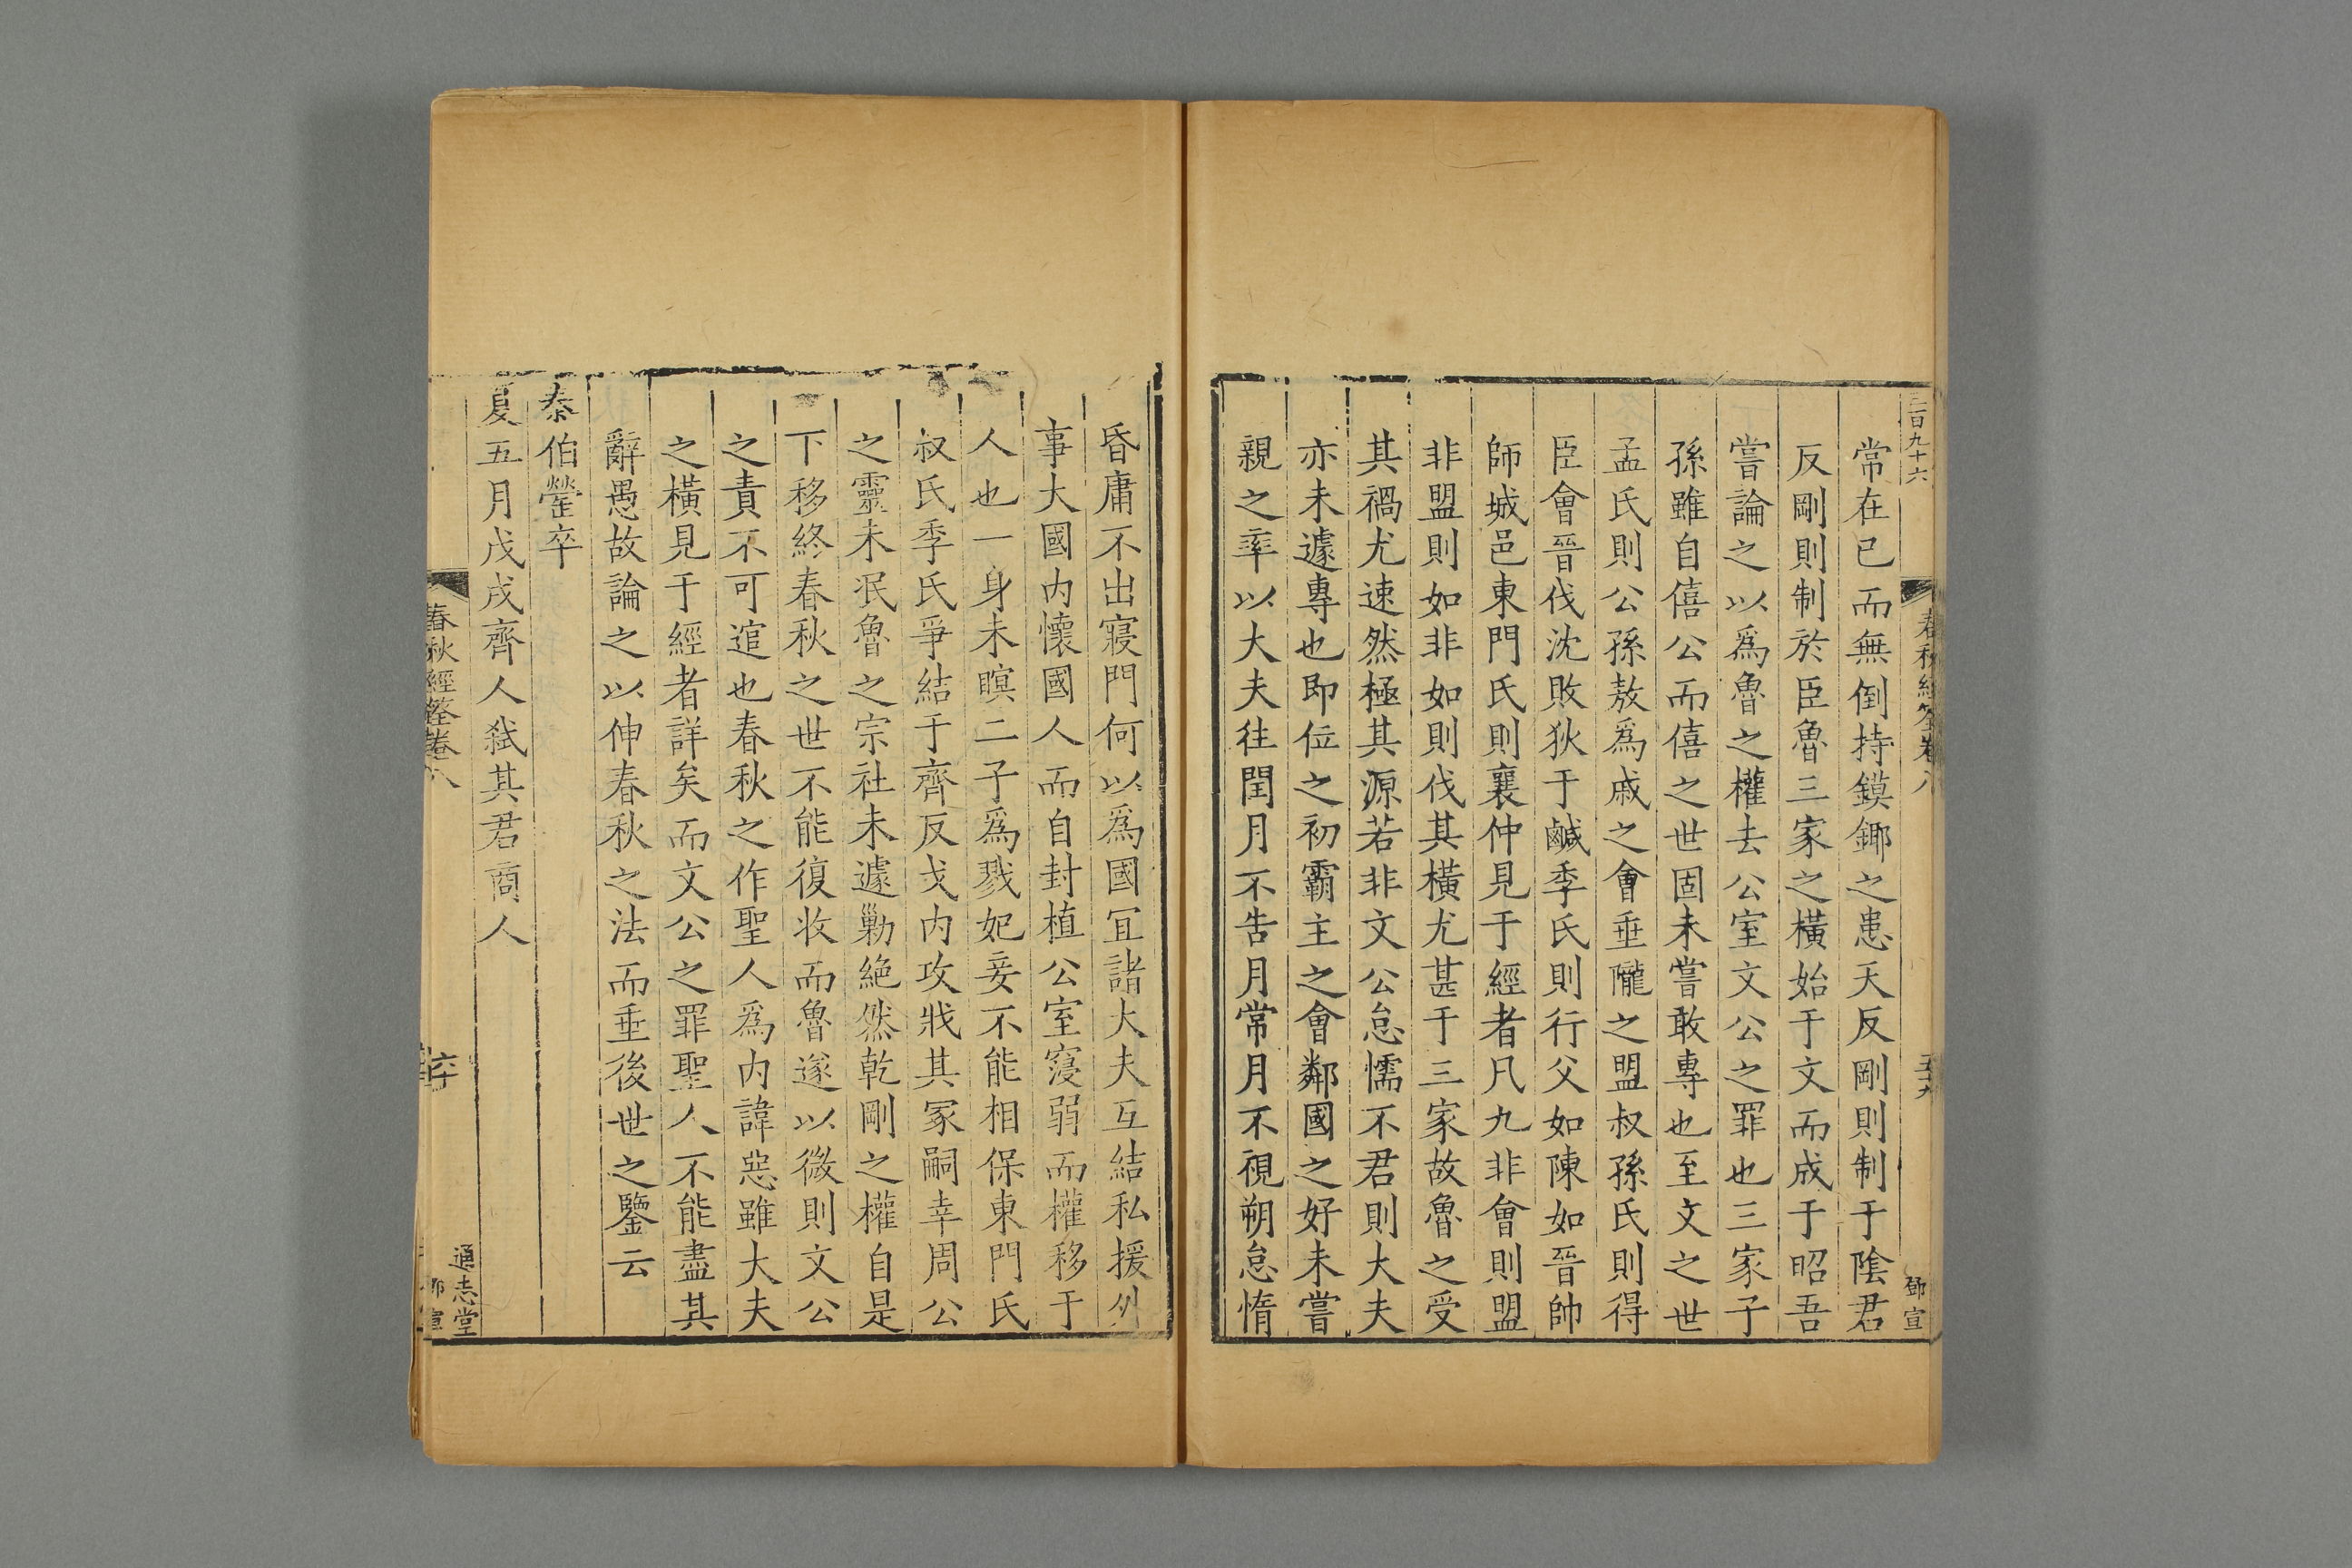 三百九十六
春秋經筌卷八
五十九
鄧宣
常在已而無倒持鏌鎁之患天反剛則制于陰君
反剛則制於臣魯三家之橫始于文而成于昭吾
嘗論之以爲魯之權去公室文公之罪也三家子
孫雖自僖公而僖之世固未嘗敢專也至文之世
孟氏則公孫敖爲戚之會垂隴之盟叔孫氏則得
臣會晉伐沈敗狄于鹹季氏則行父如陳如晉帥
師城邑東門氏則襄仲見于經者凡九非會則盟
非盟則如非如則伐其橫尤甚于三家故魯之受
其禍尤速然極其源若非文公怠懦不君則大夫
亦未遽專也即位之初霸主之會鄰國之好未嘗
親之率以大夫往閏月不告月常月不視朔怠惰
昏庸不出寢門何以爲國宜諸大夫互結私援外
事大國內懷國人而自封植公室寖弱而權移于
人也一身未瞑二子爲戮妃妾不能相保東門氏
叔氏季氏爭結于齊反戈內攻戕其冢嗣幸周公
之靈未泯魯之宗社未遽勦絶然乾剛之權自是
下移終春秋之世不能復收而魯遂以微則文公
之責不可逭也春秋之作聖人爲內諱惡雖大夫
之橫見于經者詳矣而文公之罪聖人不能盡其
辭愚故論之以伸春秋之法而垂後世之鑒云
秦伯罃卒
夏五月戊戌齊人弑其君商人
春秋經筌卷八
六十
通志堂